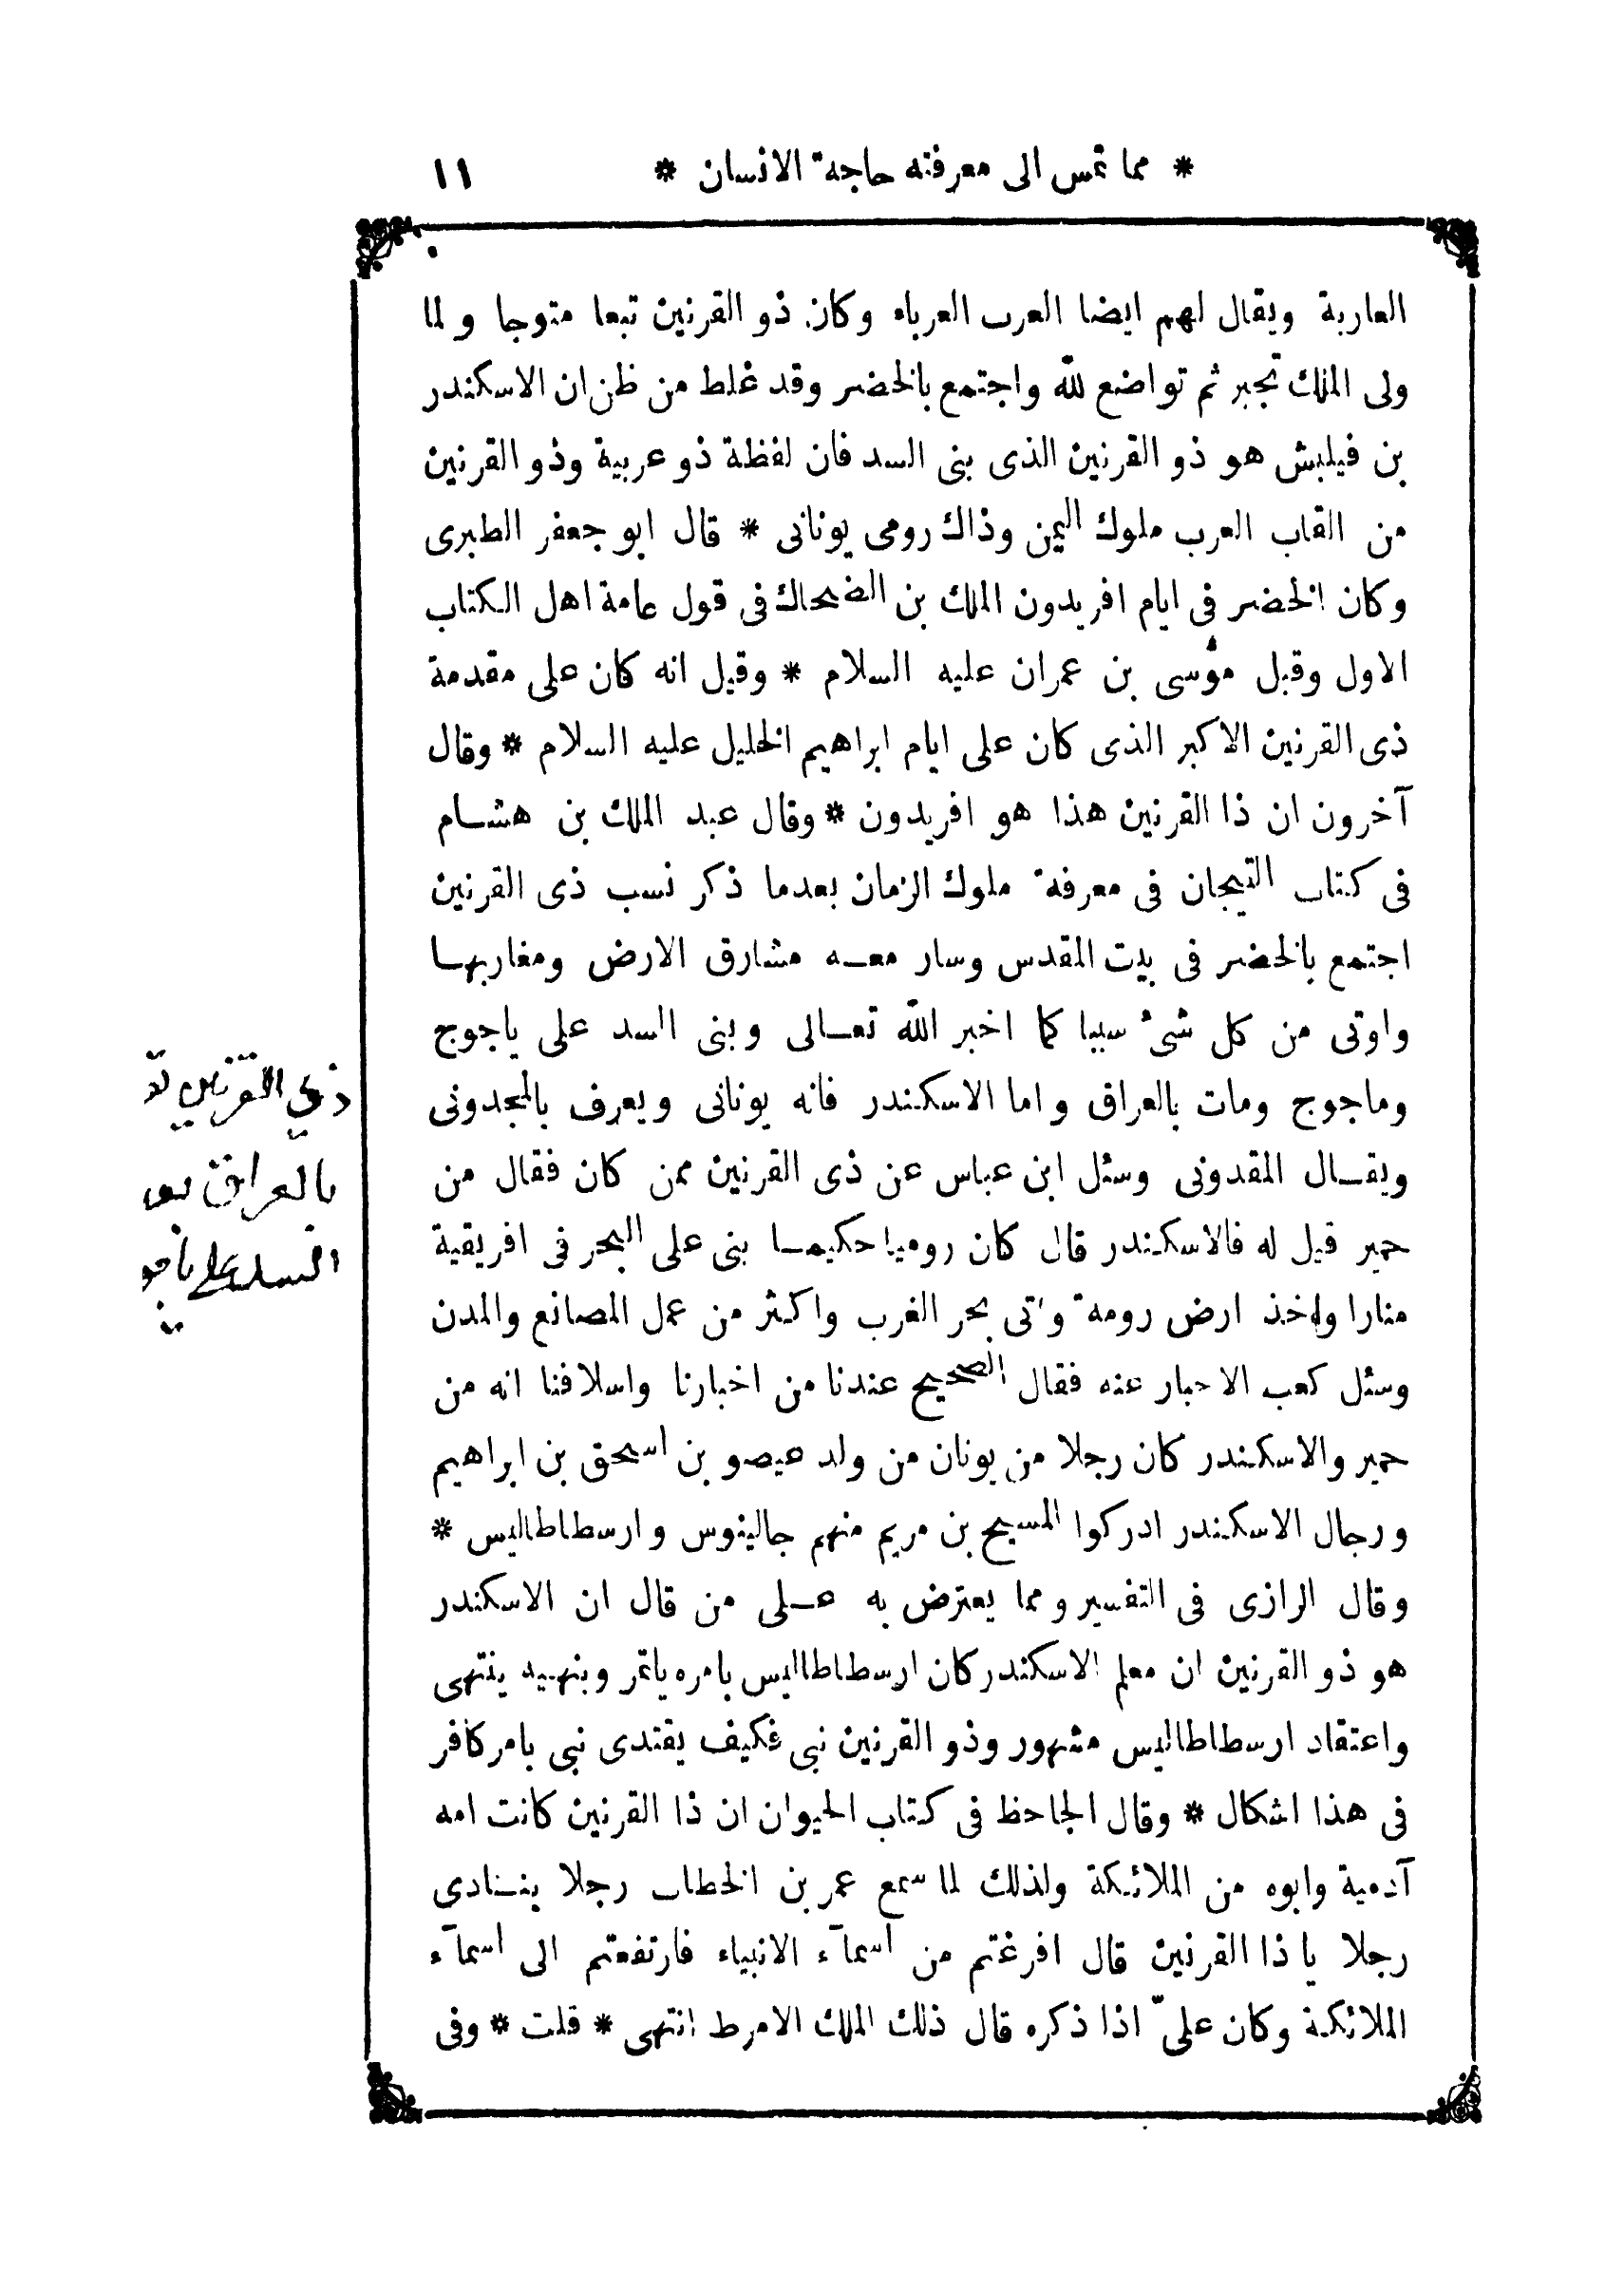 * مما تمس الى معرفته حاجة الانسان * ١١
العاربة ويقال لهم ايضا العرب العرباء وكان ذو القرنين تبعا متوجا ولما
ولى الملك تجبر ثم تواضع لله واجتمع بالخضر وقد غلط من ظن ان الاسكندر
بن فيلبش هو ذو القرنين الذى بنى السد فان لفظة ذو عربية وذو القرنين
من القاب العرب ملوك اليمن وذاك رومى يونانى * قال ابو جعفر الطبرى
وكان الخضر فى ايام افريدون الملك بن الضحاك فى قول عامة اهل الكتاب
الاول وقبل موسى بن عمران عليه السلام * وقيل انه كان على مقدمة
ذى القرنين الاكبر الذى كان على ايام ابراهيم الخليل عليه السلام * وقال
آخرون ان ذا القرنين هذا هو افريدون * وقال عبد الملك بن هشام
فى كتاب التيجان فى معرفة ملوك الزمان بعدما ذكر نسب ذى القرنين
اجتمع بالخضر فى بيت المقدس وسار معه مشارق الارض ومغاربها
واوتى من كل شئ سببا كما اخبر الله تعالى وبنى السد على ياجوج
وماجوج ومات بالعراق واما الاسكندر فانه يونانى ويعرف بالمجدونى
ويقال المقدونى وسئل ابن عباس عن ذى القرنين ممن كان فقال من
حمير قيل له فالاسكندر قال كان روميا حكيما بنى على البحر فى افريقية
منارا واخذ ارض رومة واتى بحر الغرب واكثر من عمل المصانع والمدن
وسئل كعب الاحبار عنه فقال الصحيح عندنا من اخبارنا واسلافنا انه من
حمير والاسكندر كان رجلا من يونان من ولد عيصو بن اسحق بن ابراهيم
ورجال الاسكندر ادركوا المسيح بن مريم منهم جالينوس وارسطاطاليس *
وقال الرازى فى التفسير ومما يعترض به على من قال ان الاسكندر
هو ذو القرنين ان معلم الاسكندر كان ارسطاطاليس بامره ياتمر وبنهيه ينتهى
واعتقاد ارسطاطاليس مشهور وذو القرنين نبى فكيف يقتدى نبى بامر كافر
فى هذا اشكال * وقال الجاحظ فى كتاب الحيوان ان ذا القرنين كانت امه
آدمية وابوه من الملائكة ولذلك لما سمع عمر بن الخطاب رجلا ينادى
رجلا يا ذا القرنين قال افرغتم من اسمآء الانبياء فارتفعتم الى اسمآء
الملائكة وكان علىّ اذا ذكره قال ذلك الملك الامرط انتهى * قلت * وفى
ذي القرنين
بالعراق
السد على